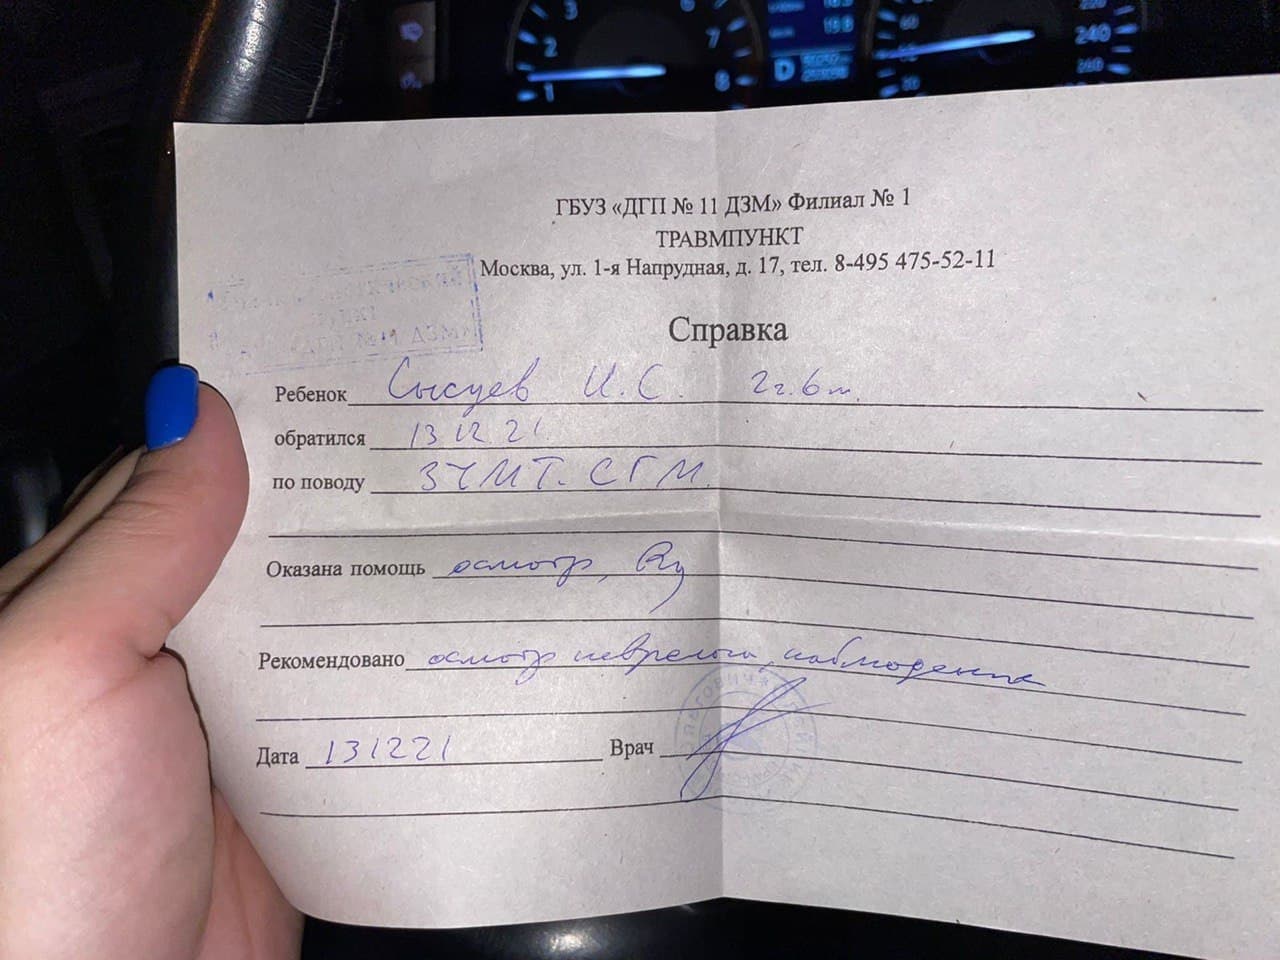 3
2
1
7
8
198
D
60
240
260
ГБУЗ «ДГП № 11 ДЗМ» Филиал № 1
ТРАВМПУНКТ
Москва, ул. 1-я Напрудная, д. 17, тел. 8-495 475-52-11
Справка
Ребенок Сысуев И.С. 2г.6м.
обратился 13 12 21
по поводу ЗЧМТ. СГМ.
Оказана помощь осмотр, Rg
Рекомендовано осмотр невролога, наблюдение
Дата 131221 Врач